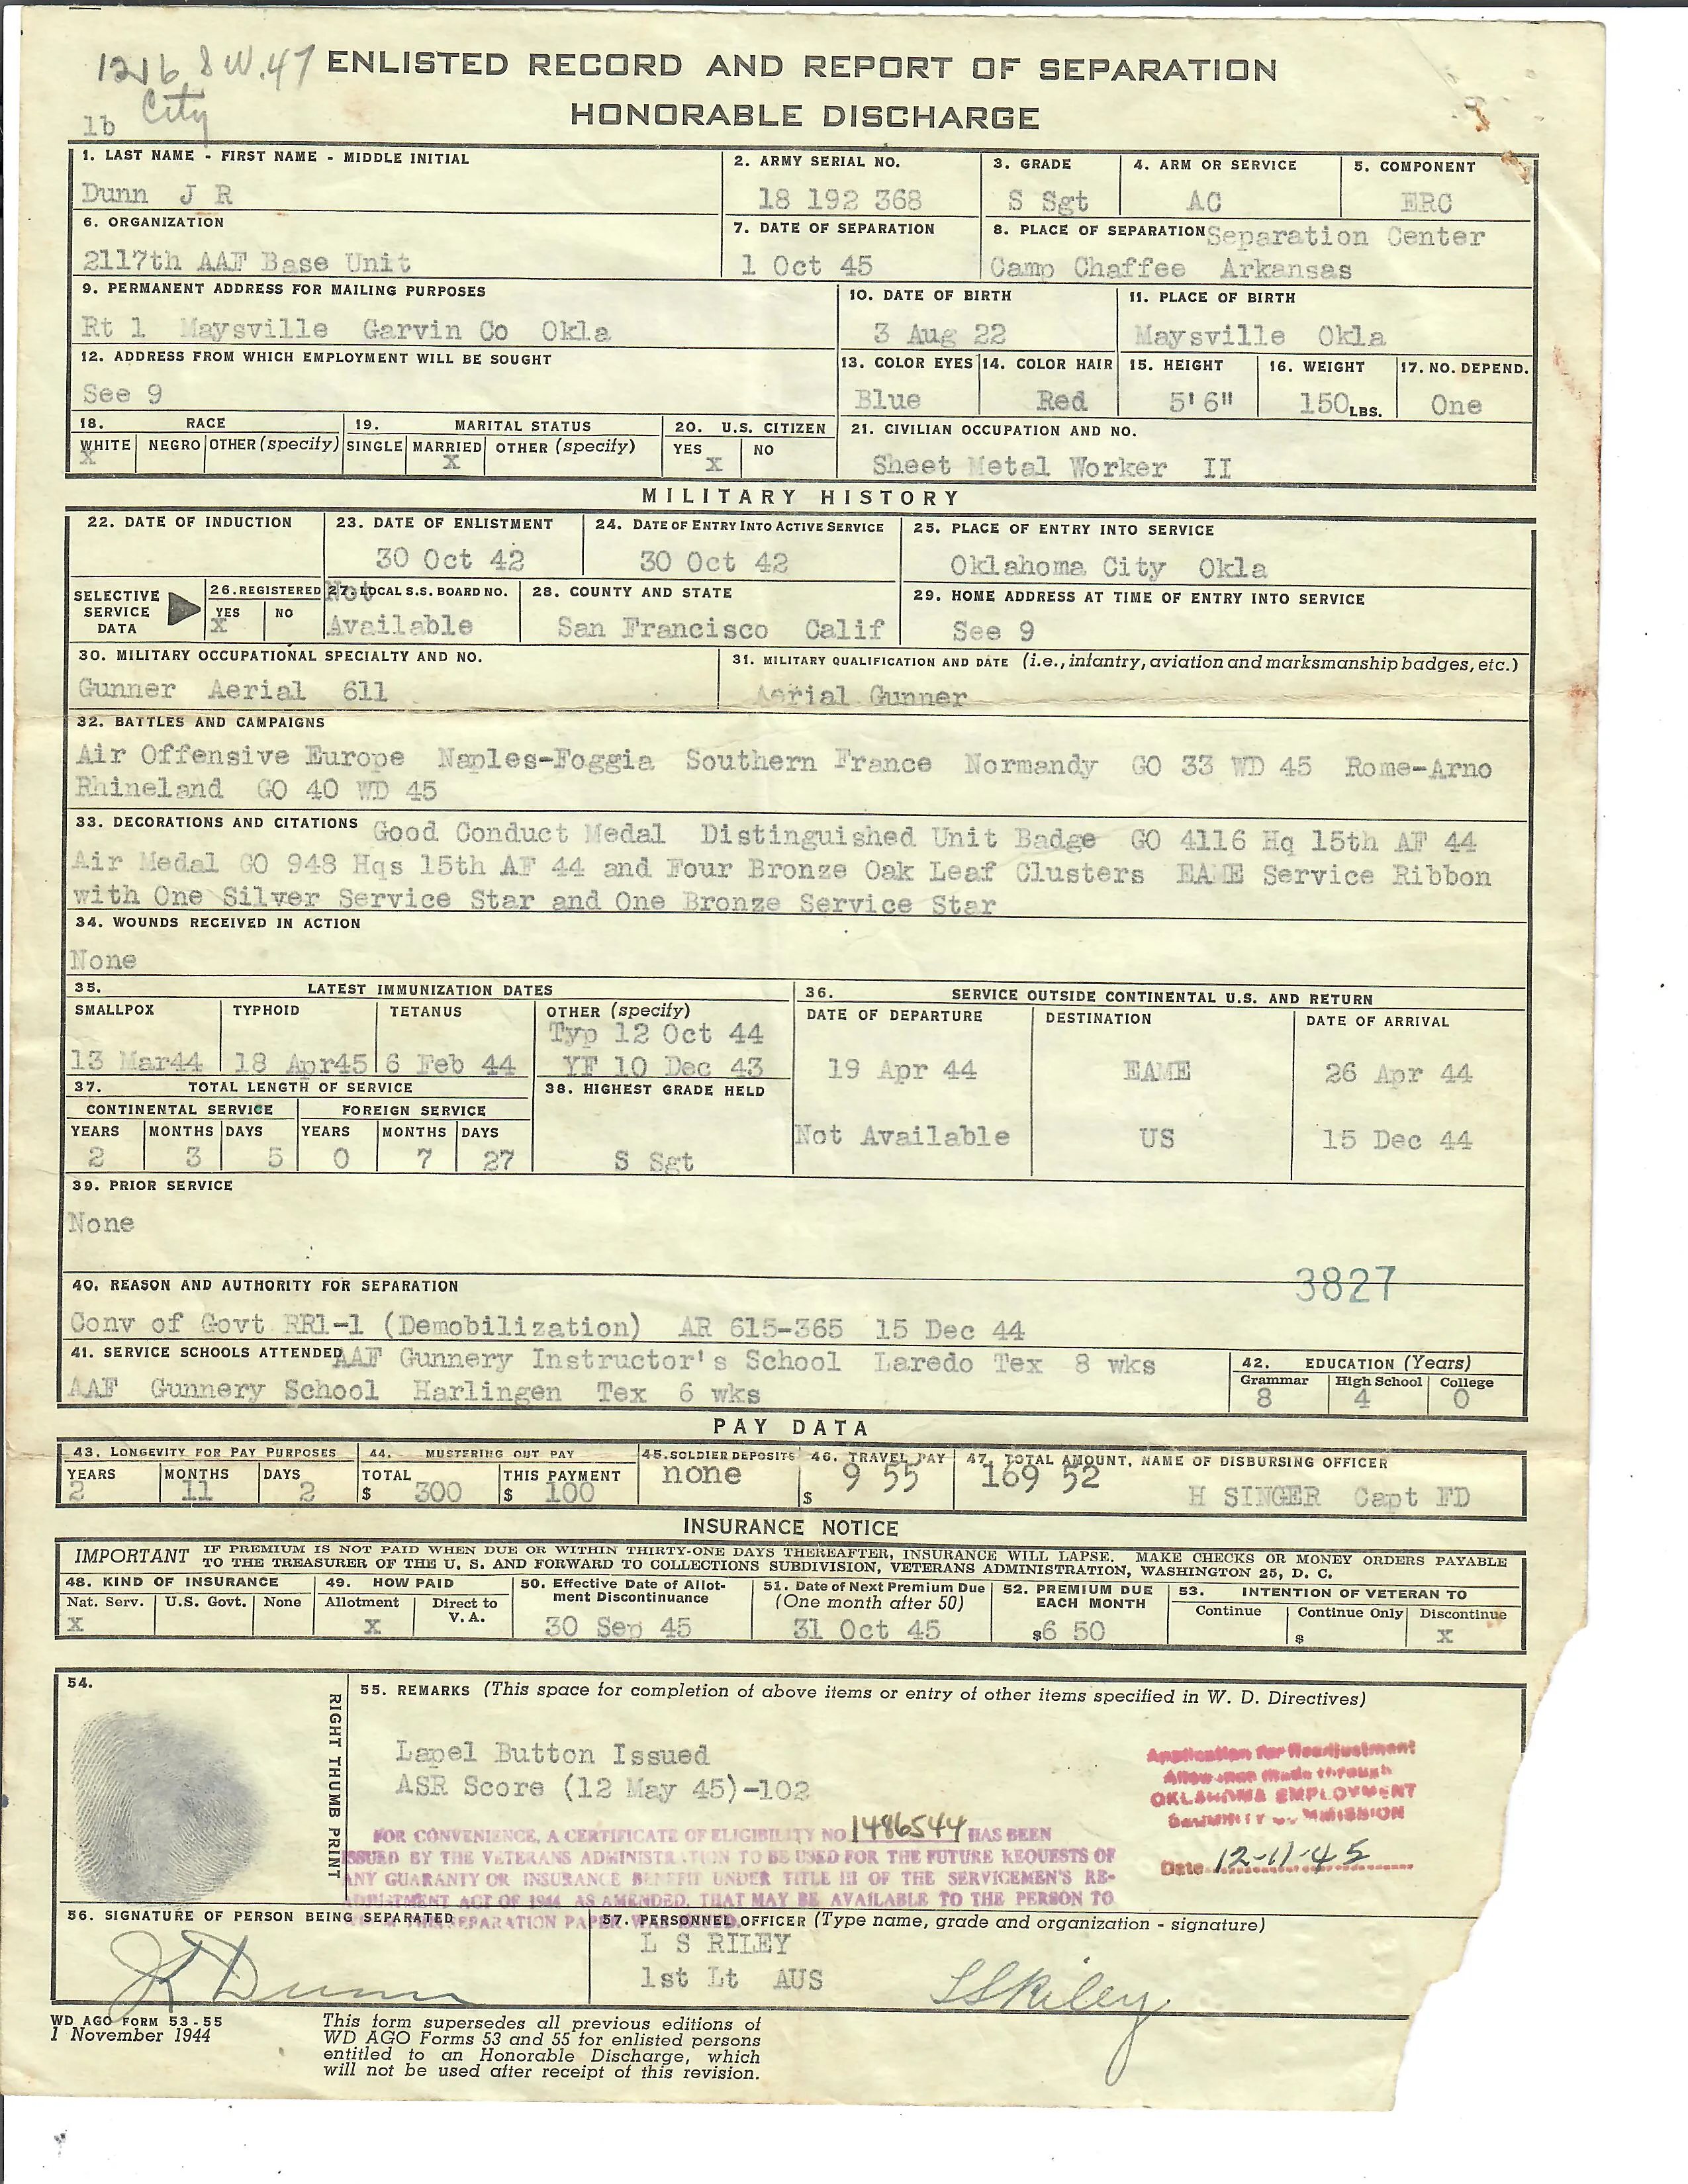 1216 S W. 47
City
1b
ENLISTED RECORD AND REPORT OF SEPARATION
HONORABLE DISCHARGE
1. LAST NAME - FIRST NAME - MIDDLE INITIAL
Dunn J R
2. ARMY SERIAL NO.
18 192 368
3. GRADE
S Sgt
4. ARM OR SERVICE
AC
5. COMPONENT
ERC
6. ORGANIZATION
2117th AAF Base Unit
7. DATE OF SEPARATION
1 Oct 45
8. PLACE OF SEPARATION Separation Center
Camp Chaffee Arkansas
9. PERMANENT ADDRESS FOR MAILING PURPOSES
Rt 1 Maysville Garvin Co Okla
10. DATE OF BIRTH
3 Aug 22
11. PLACE OF BIRTH
Maysville Okla
12. ADDRESS FROM WHICH EMPLOYMENT WILL BE SOUGHT
See 9
13. COLOR EYES
Blue
14. COLOR HAIR
Red
15. HEIGHT
5'6"
16. WEIGHT
150 LBS.
17. NO. DEPEND.
One
18. RACE
WHITE NEGRO OTHER (specify)
X
19. MARITAL STATUS
SINGLE MARRIED OTHER (specify)
X
20. U.S. CITIZEN
YES NO
X
21. CIVILIAN OCCUPATION AND NO.
Sheet Metal Worker II
MILITARY HISTORY
22. DATE OF INDUCTION
23. DATE OF ENLISTMENT
30 Oct 42
24. DATE OF ENTRY INTO ACTIVE SERVICE
30 Oct 42
25. PLACE OF ENTRY INTO SERVICE
Oklahoma City Okla
SELECTIVE
SERVICE
DATA
26. REGISTERED
YES NO
X
27. LOCAL S.S. BOARD NO.
Not
Available
28. COUNTY AND STATE
San Francisco Calif
29. HOME ADDRESS AT TIME OF ENTRY INTO SERVICE
See 9
30. MILITARY OCCUPATIONAL SPECIALTY AND NO.
Gunner Aerial 611
31. MILITARY QUALIFICATION AND DATE (i.e., infantry, aviation and marksmanship badges, etc.)
Aerial Gunner
32. BATTLES AND CAMPAIGNS
Air Offensive Europe Naples-Foggia Southern France Normandy GO 33 WD 45 Rome-Arno
Rhineland GO 40 WD 45
33. DECORATIONS AND CITATIONS Good Conduct Medal Distinguished Unit Badge GO 4116 Hq 15th AF 44
Air Medal GO 948 Hqs 15th AF 44 and Four Bronze Oak Leaf Clusters EAME Service Ribbon
with One Silver Service Star and One Bronze Service Star
34. WOUNDS RECEIVED IN ACTION
None
35. LATEST IMMUNIZATION DATES
SMALLPOX TYPHOID TETANUS OTHER (specify)
Typ 12 Oct 44
13 Mar44 18 Apr45 6 Feb 44 YF 10 Dec 43
36. SERVICE OUTSIDE CONTINENTAL U.S. AND RETURN
DATE OF DEPARTURE DESTINATION DATE OF ARRIVAL
19 Apr 44 EAME 26 Apr 44
Not Available US 15 Dec 44
37. TOTAL LENGTH OF SERVICE
CONTINENTAL SERVICE FOREIGN SERVICE
YEARS MONTHS DAYS YEARS MONTHS DAYS
2 3 5 0 7 27
38. HIGHEST GRADE HELD
S Sgt
39. PRIOR SERVICE
None
3827
40. REASON AND AUTHORITY FOR SEPARATION
Conv of Govt RR1-1 (Demobilization) AR 615-365 15 Dec 44
41. SERVICE SCHOOLS ATTENDED AAF Gunnery Instructor's School Laredo Tex 8 wks
AAF Gunnery School Harlingen Tex 6 wks
42. EDUCATION (Years)
Grammar High School College
8 4 0
PAY DATA
43. LONGEVITY FOR PAY PURPOSES
YEARS MONTHS DAYS
2 11 2
44. MUSTERING OUT PAY
TOTAL THIS PAYMENT
$ 300 $ 100
45. SOLDIER DEPOSITS
none
46. TRAVEL PAY
$ 9 55
47. TOTAL AMOUNT, NAME OF DISBURSING OFFICER
169 52
H SINGER Capt FD
INSURANCE NOTICE
IMPORTANT IF PREMIUM IS NOT PAID WHEN DUE OR WITHIN THIRTY-ONE DAYS THEREAFTER, INSURANCE WILL LAPSE. MAKE CHECKS OR MONEY ORDERS PAYABLE
TO THE TREASURER OF THE U. S. AND FORWARD TO COLLECTIONS SUBDIVISION, VETERANS ADMINISTRATION, WASHINGTON 25, D. C.
48. KIND OF INSURANCE
Nat. Serv. U.S. Govt. None
X
49. HOW PAID
Allotment Direct to
V. A.
X
50. Effective Date of Allot-
ment Discontinuance
30 Sep 45
51. Date of Next Premium Due
(One month after 50)
31 Oct 45
52. PREMIUM DUE
EACH MONTH
$6 50
53. INTENTION OF VETERAN TO
Continue Continue Only Discontinue
$ X
54.
RIGHT THUMB PRINT
55. REMARKS (This space for completion of above items or entry of other items specified in W. D. Directives)
Lapel Button Issued
ASR Score (12 May 45)-102
Application for Readjustment
Allowance Made through
OKLAHOMA EMPLOYMENT
SECURITY COMMISSION
Date 12-11-45
FOR CONVENIENCE, A CERTIFICATE OF ELIGIBILITY NO 1486544 HAS BEEN
ISSUED BY THE VETERANS ADMINISTRATION TO BE USED FOR THE FUTURE REQUESTS OF
ANY GUARANTY OR INSURANCE BENEFIT UNDER TITLE III OF THE SERVICEMEN'S RE-
ADJUSTMENT ACT OF 1944 AS AMENDED, THAT MAY BE AVAILABLE TO THE PERSON TO
SEPARATION PAPER WAS ISSUED.
56. SIGNATURE OF PERSON BEING SEPARATED
J R Dunn
57. PERSONNEL OFFICER (Type name, grade and organization - signature)
L S RILEY
1st Lt AUS
L S Riley
WD AGO FORM 53-55
1 November 1944
This form supersedes all previous editions of
WD AGO Forms 53 and 55 for enlisted persons
entitled to an Honorable Discharge, which
will not be used after receipt of this revision.